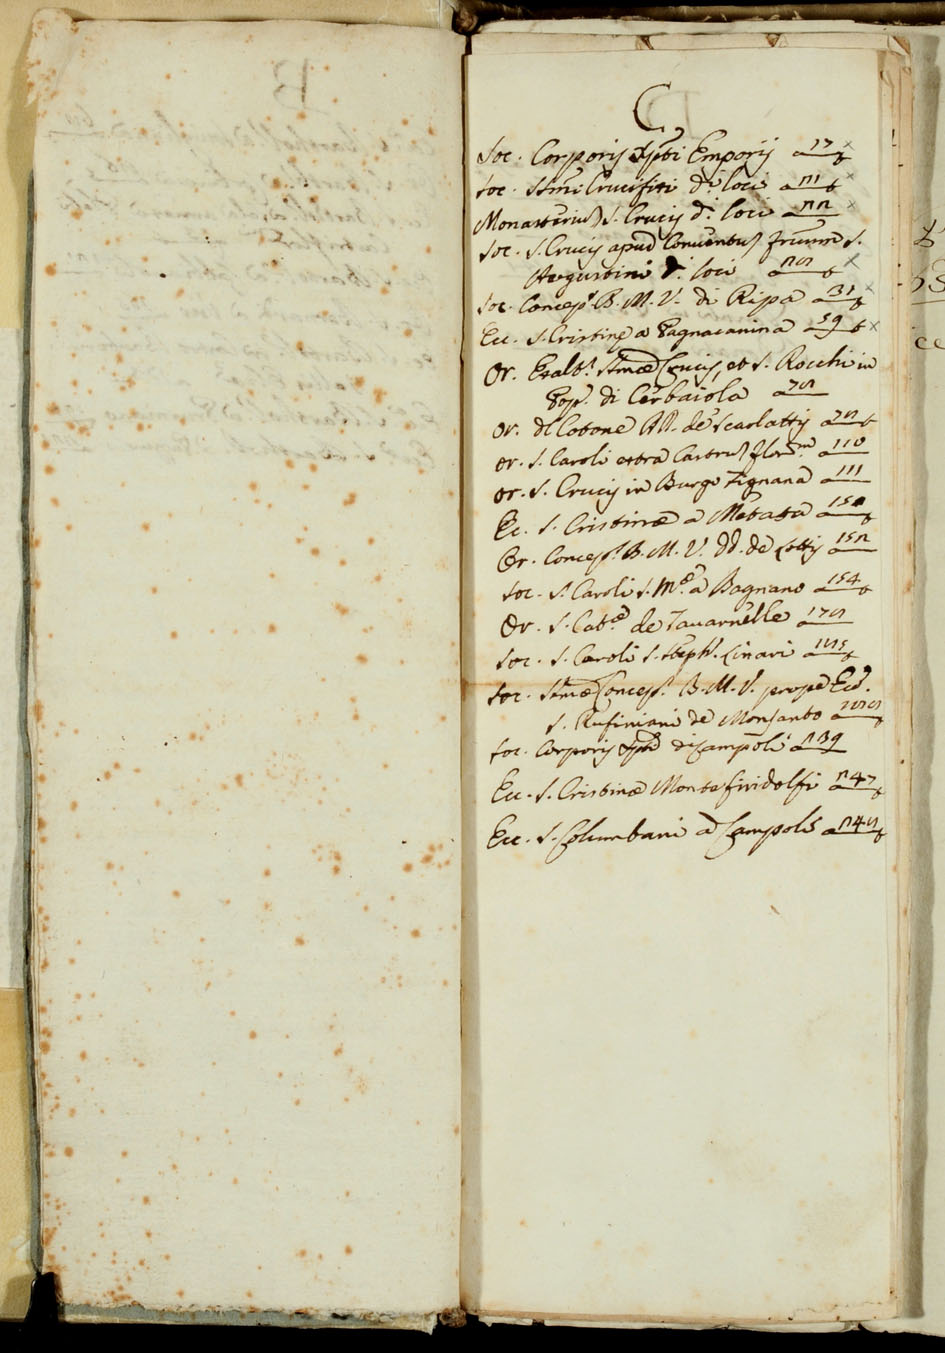 C
Soc. Corporis Xpti Emporij a 17
Soc. SSmi Crucifixi d.i loci a
Monasterium S. Crucis d.i loci a
Soc. S. Crucis apud Conventum frum S.
Augustini d.i loci a
Soc. Concep.s B. M. V. di Ripa a 31
Ecc. S. Cristine a Pagnacanina a 59
Or. Exalt.s SSmæ Crucis, et S. Rocchi in
Pop.o di Cerbaiola a
Or. del Cotone de Scarlattis a
Or. S. Caroli extra Castrum floren. a 110
Or. S. Crucis in Burgo Tignana a 111
Ec. S. Cristinæ a Metata a
Or. Concep.s B. M. V. DD. de Lottis a
Soc. S. Caroli S. M.e a Bagnano a 154
Or. S. Cat.e de Tavarnelle
Soc. S. Caroli S. Steph. Linari a
Soc. SSmæ Concep.s B. M. V. prope Ecc.
S. Rufiniani de Monsanto a
Soc. Corporis Xpti di Campoli a
Ecc. S. Cristinæ Montefiridolfi a
Ecc. S. Columbani a Campoli a